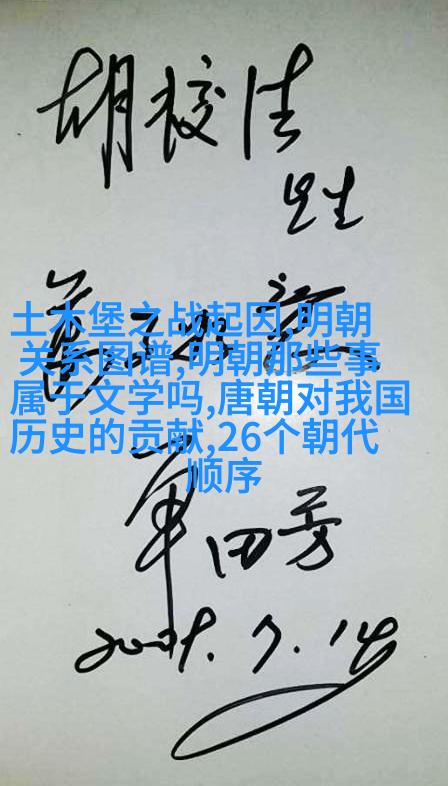 胡
先生
土木堡之战起因,明朝
关系图谱,明朝那些事
属于文学吗,唐朝对我国
历史的贡献,26个朝代
顺序
单田芳
7.14